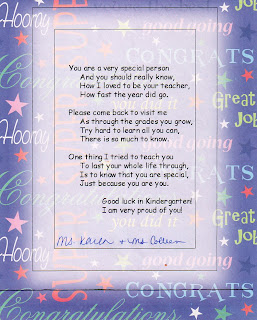 Hooray
CONGRATS
good going
Great Job
you did it
Congratulations
You are a very special person
And you should really know,
How I loved to be your teacher,
How fast the year did go.
Please come back to visit me
As through the grades you grow,
Try hard to learn all you can,
There is so much to know.
One thing I tried to teach you
To last your whole life through,
Is to know that you are special,
Just because you are you.
Good luck in Kindergarten!
I am very proud of you!
Ms. Karen + Ms Colleen
Hooray
good going
Great Job
CONGRATS
Congratulations